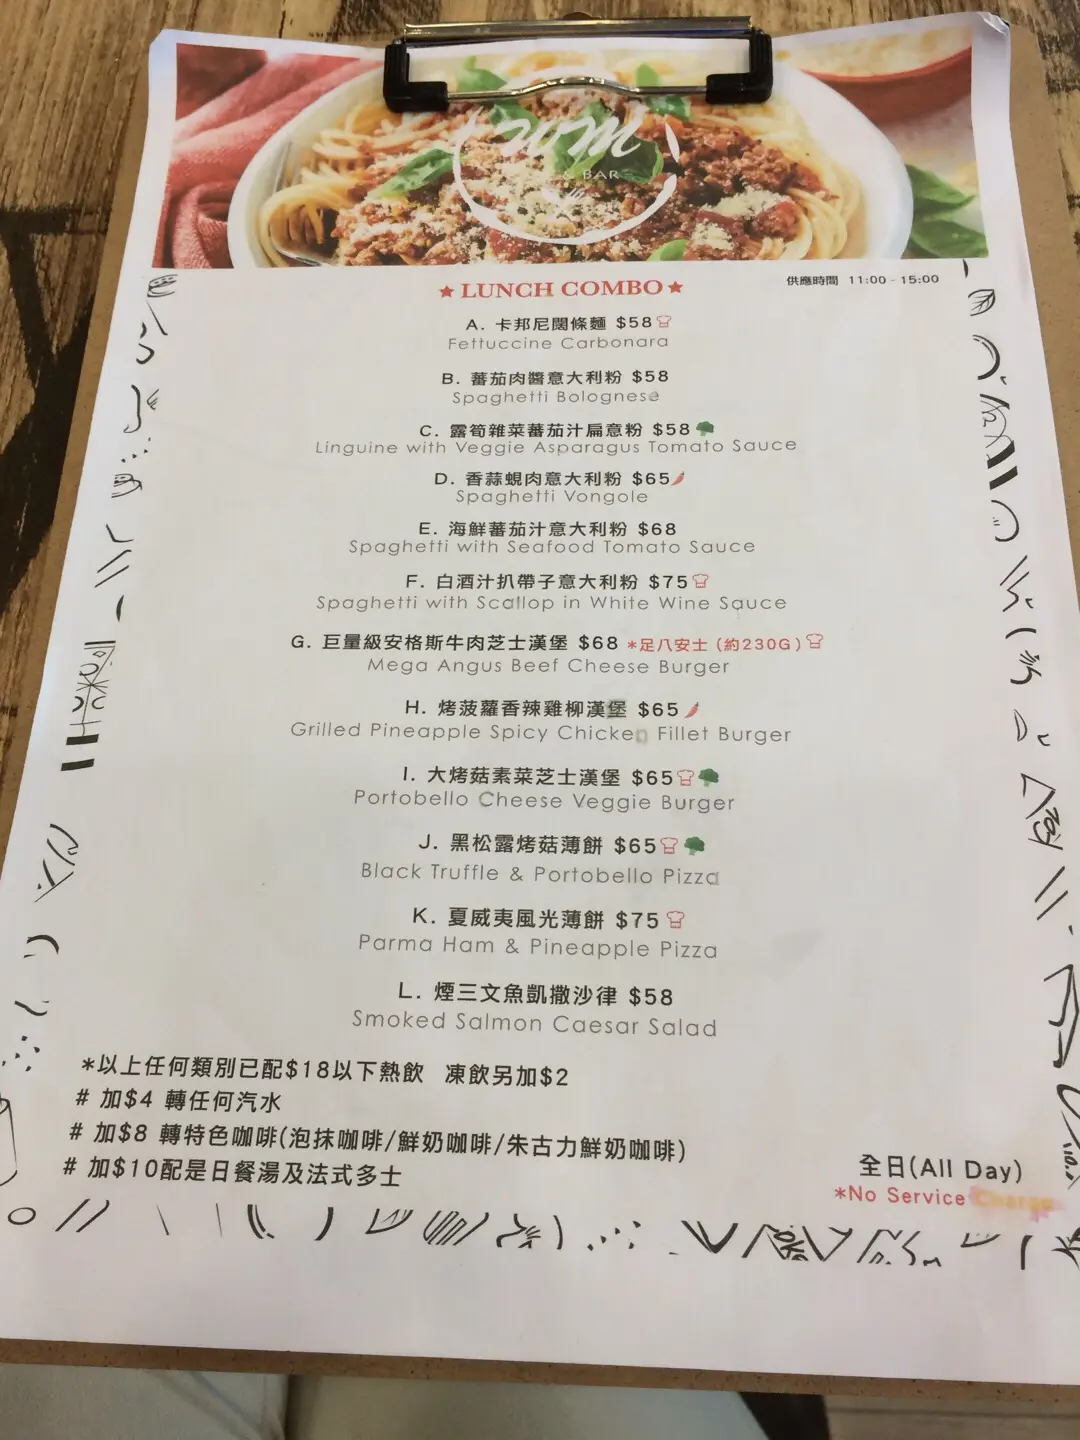 & BAR
★ LUNCH COMBO ★
供應時間 11:00 - 15:00
A. 卡邦尼闊條麵 $58
Fettuccine Carbonara
B. 蕃茄肉醬意大利粉 $58
Spaghetti Bolognese
C. 露筍雜菜蕃茄汁扁意粉 $58
Linguine with Veggie Asparagus Tomato Sauce
D. 香蒜蜆肉意大利粉 $65
Spaghetti Vongole
E. 海鮮蕃茄汁意大利粉 $68
Spaghetti with Seafood Tomato Sauce
F. 白酒汁扒帶子意大利粉 $75
Spaghetti with Scallop in White Wine Sauce
G. 巨量級安格斯牛肉芝士漢堡 $68 *足八安士 (約230G)
Mega Angus Beef Cheese Burger
H. 烤菠蘿香辣雞柳漢堡 $65
Grilled Pineapple Spicy Chicken Fillet Burger
I. 大烤菇素菜芝士漢堡 $65
Portobello Cheese Veggie Burger
J. 黑松露烤菇薄餅 $65
Black Truffle & Portobello Pizza
K. 夏威夷風光薄餅 $75
Parma Ham & Pineapple Pizza
L. 煙三文魚凱撒沙律 $58
Smoked Salmon Caesar Salad
*以上任何類別已配$18以下熱飲 凍飲另加$2
# 加$4 轉任何汽水
# 加$8 轉特色咖啡(泡抹咖啡/鮮奶咖啡/朱古力鮮奶咖啡)
# 加$10配是日餐湯及法式多士
全日(All Day)
*No Service Charge